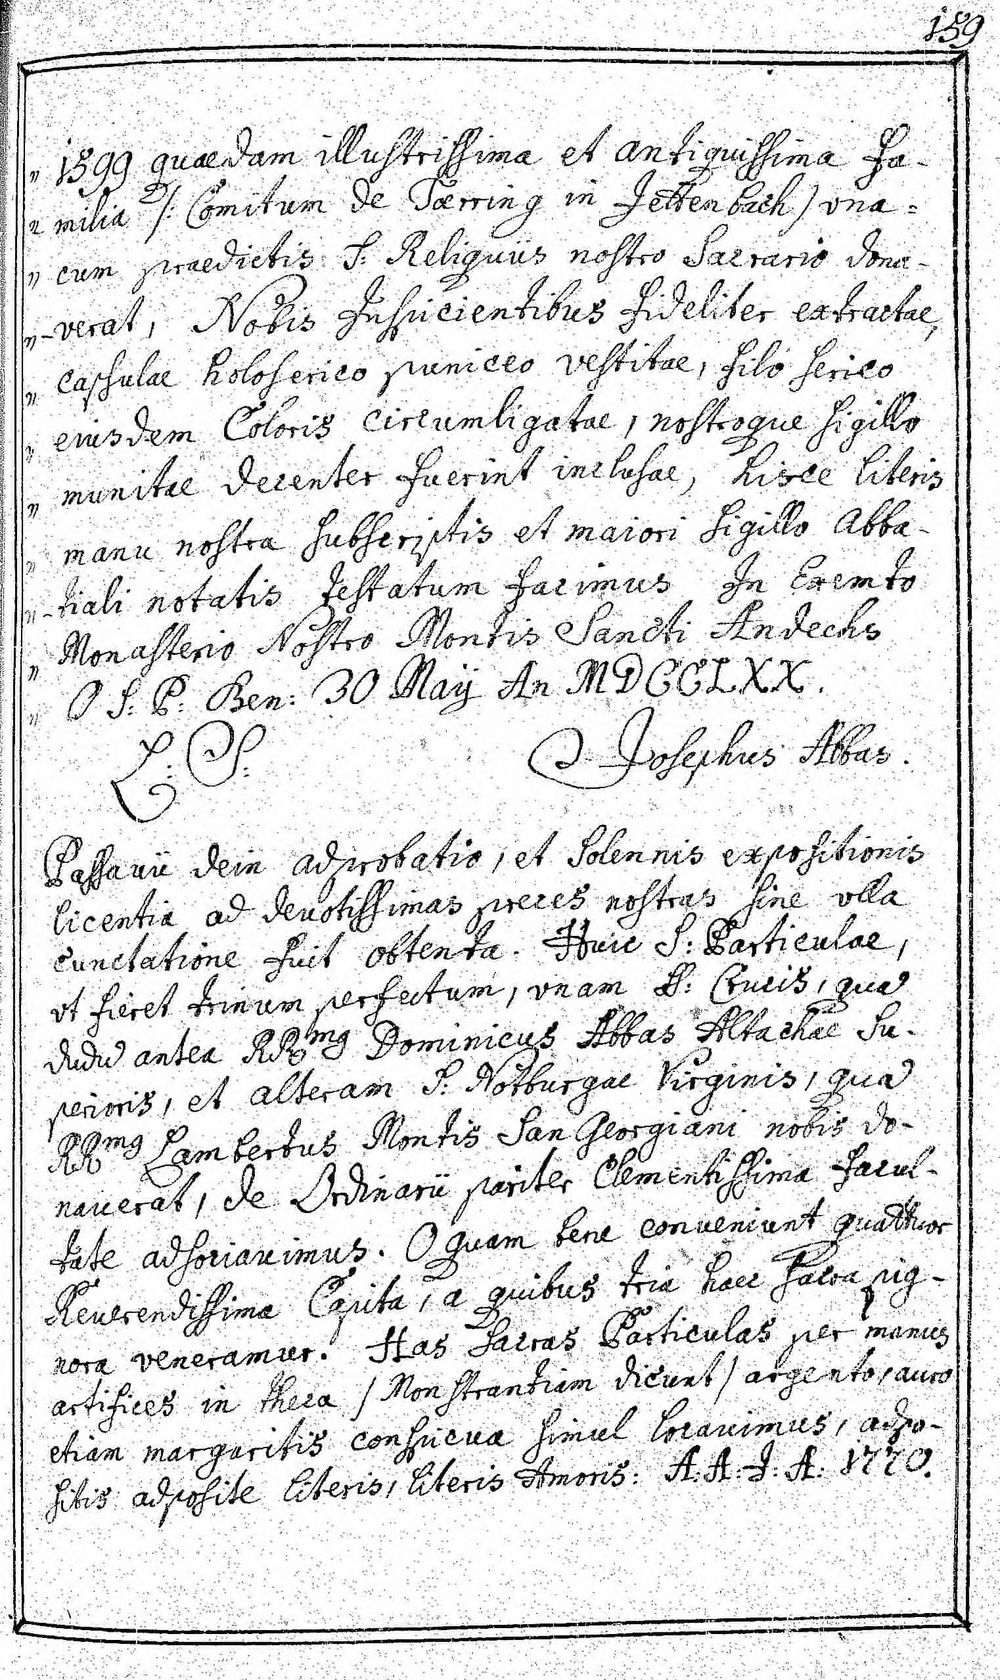 159
„ 1599 quaedam illustrissima et antiquissima fa-
„ milia /: Comitum de Tærring in Jettenbach / vna=
„ cum praedictis S: Reliquiis nostro Sacrario dona-
„ -verat, Nobis Inspicientibus fideliter extractae,
„ capsulae holoserico puniceo vestitae, filo serico
„ eiusdem Coloris circumligatae, nostroque sigillo
„ munitae decenter fuerint inclusae, hisce literis
„ manu nostra subscriptis et maiori sigillo Abba-
„ -tiali notatis testatum facimus In Exemto
„ Monasterio Nostro Montis Sancti Andechs
„ O S: P: Ben: 30 Maÿ An MDCCLXX.
L: S: Josephus Abbas.
Passavii dein adprobatio, et solennis expositionis
licentia ad deuotissimas preces nostras sine vlla
cunctatione fuit obtenta. Huic S: Particulae,
vt fieret trinum perfectum, vnam S: Crucis, quã
dudũ antea RRmg Dominicus Abbas Altachae Su-
perioris, et alteram S: Notburgae Virginis, quã
RRmg Lambertus Montis San Georgiani nobis do-
nauerat, de Ordinarii pariter Clementissima facul-
tate adsociauimus. O quam bene conueniunt quattuor
Reuerendissima Capita, a quibus tria haec sacra pig-
nora veneramur. Has sacras Particulas per manus
artifices in theca / Monstrantiam dicunt / argento, auro
etiam margaritis conspicua simul locauimus, adpo-
sitis adposite literis, literis Amoris: A. A. J. A. 1770.